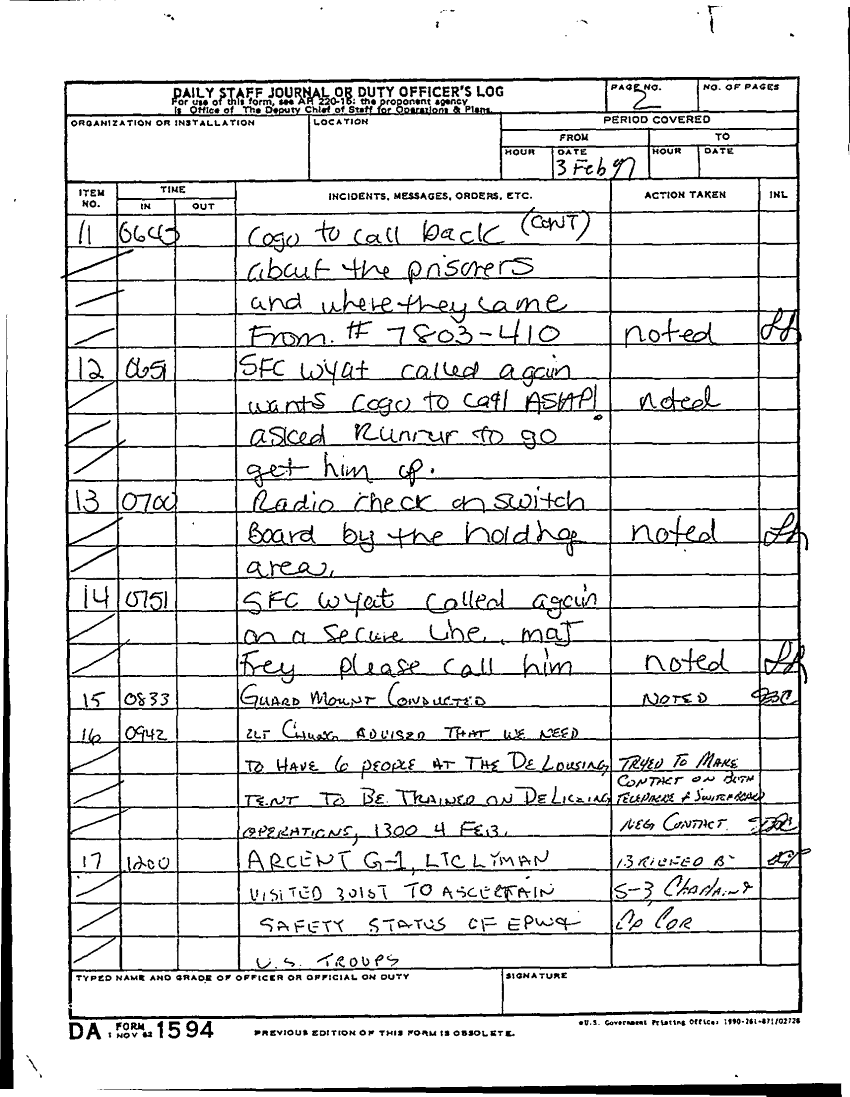 DAILY STAFF JOURNAL OR DUTY OFFICER'S LOG
For use of this form, see AR 220-15; the proponent agency
is Office of The Deputy Chief of Staff for Operations & Plans.
PAGE NO.
2
NO. OF PAGES
ORGANIZATION OR INSTALLATION
LOCATION
PERIOD COVERED
FROM
TO
HOUR
DATE
3 Feb 91
HOUR
DATE
ITEM NO.
TIME
IN
OUT
INCIDENTS, MESSAGES, ORDERS, ETC.
ACTION TAKEN
INL
11 0640 Cogo to call back (CONT)
about the prisorers
and where they came
From. # 7803-410 noted
12 0651 SFC Wyat called again
wants Cogo to call ASAP! noted
asked Runrur to go
get him up.
13 0700 Radio check on switch
Board by the holding noted
area,
14 0751 SFC Wyat called again
on a secure line, maJ
Frey please call him noted
15 0833 GUARD MOUNT CONDUCTED NOTED
16 0942 2LT ADVISED THAT WE NEED
TO HAVE 6 PEOPLE AT THE DELOUSING TRYED TO MAKE
CONTACT ON BOTH
TENT TO BE TRAINED ON DELICEING TELEPHONE & SWITCHBOARD
OPERATIONS, 1300 4 FEB. NEG CONTACT
17 1200 ARCENT G-1, LTC LYMAN BRIEFED BY
VISITED 301ST TO ASCERTAIN S-3, Chaplain &
SAFETY STATUS OF EPW &
U.S. TROOPS
TYPED NAME AND GRADE OF OFFICER OR OFFICIAL ON DUTY
SIGNATURE
DA FORM 1 NOV 62 1594
PREVIOUS EDITION OF THIS FORM IS OBSOLETE.
U.S. Government Printing Office: 1990-261-871/02726